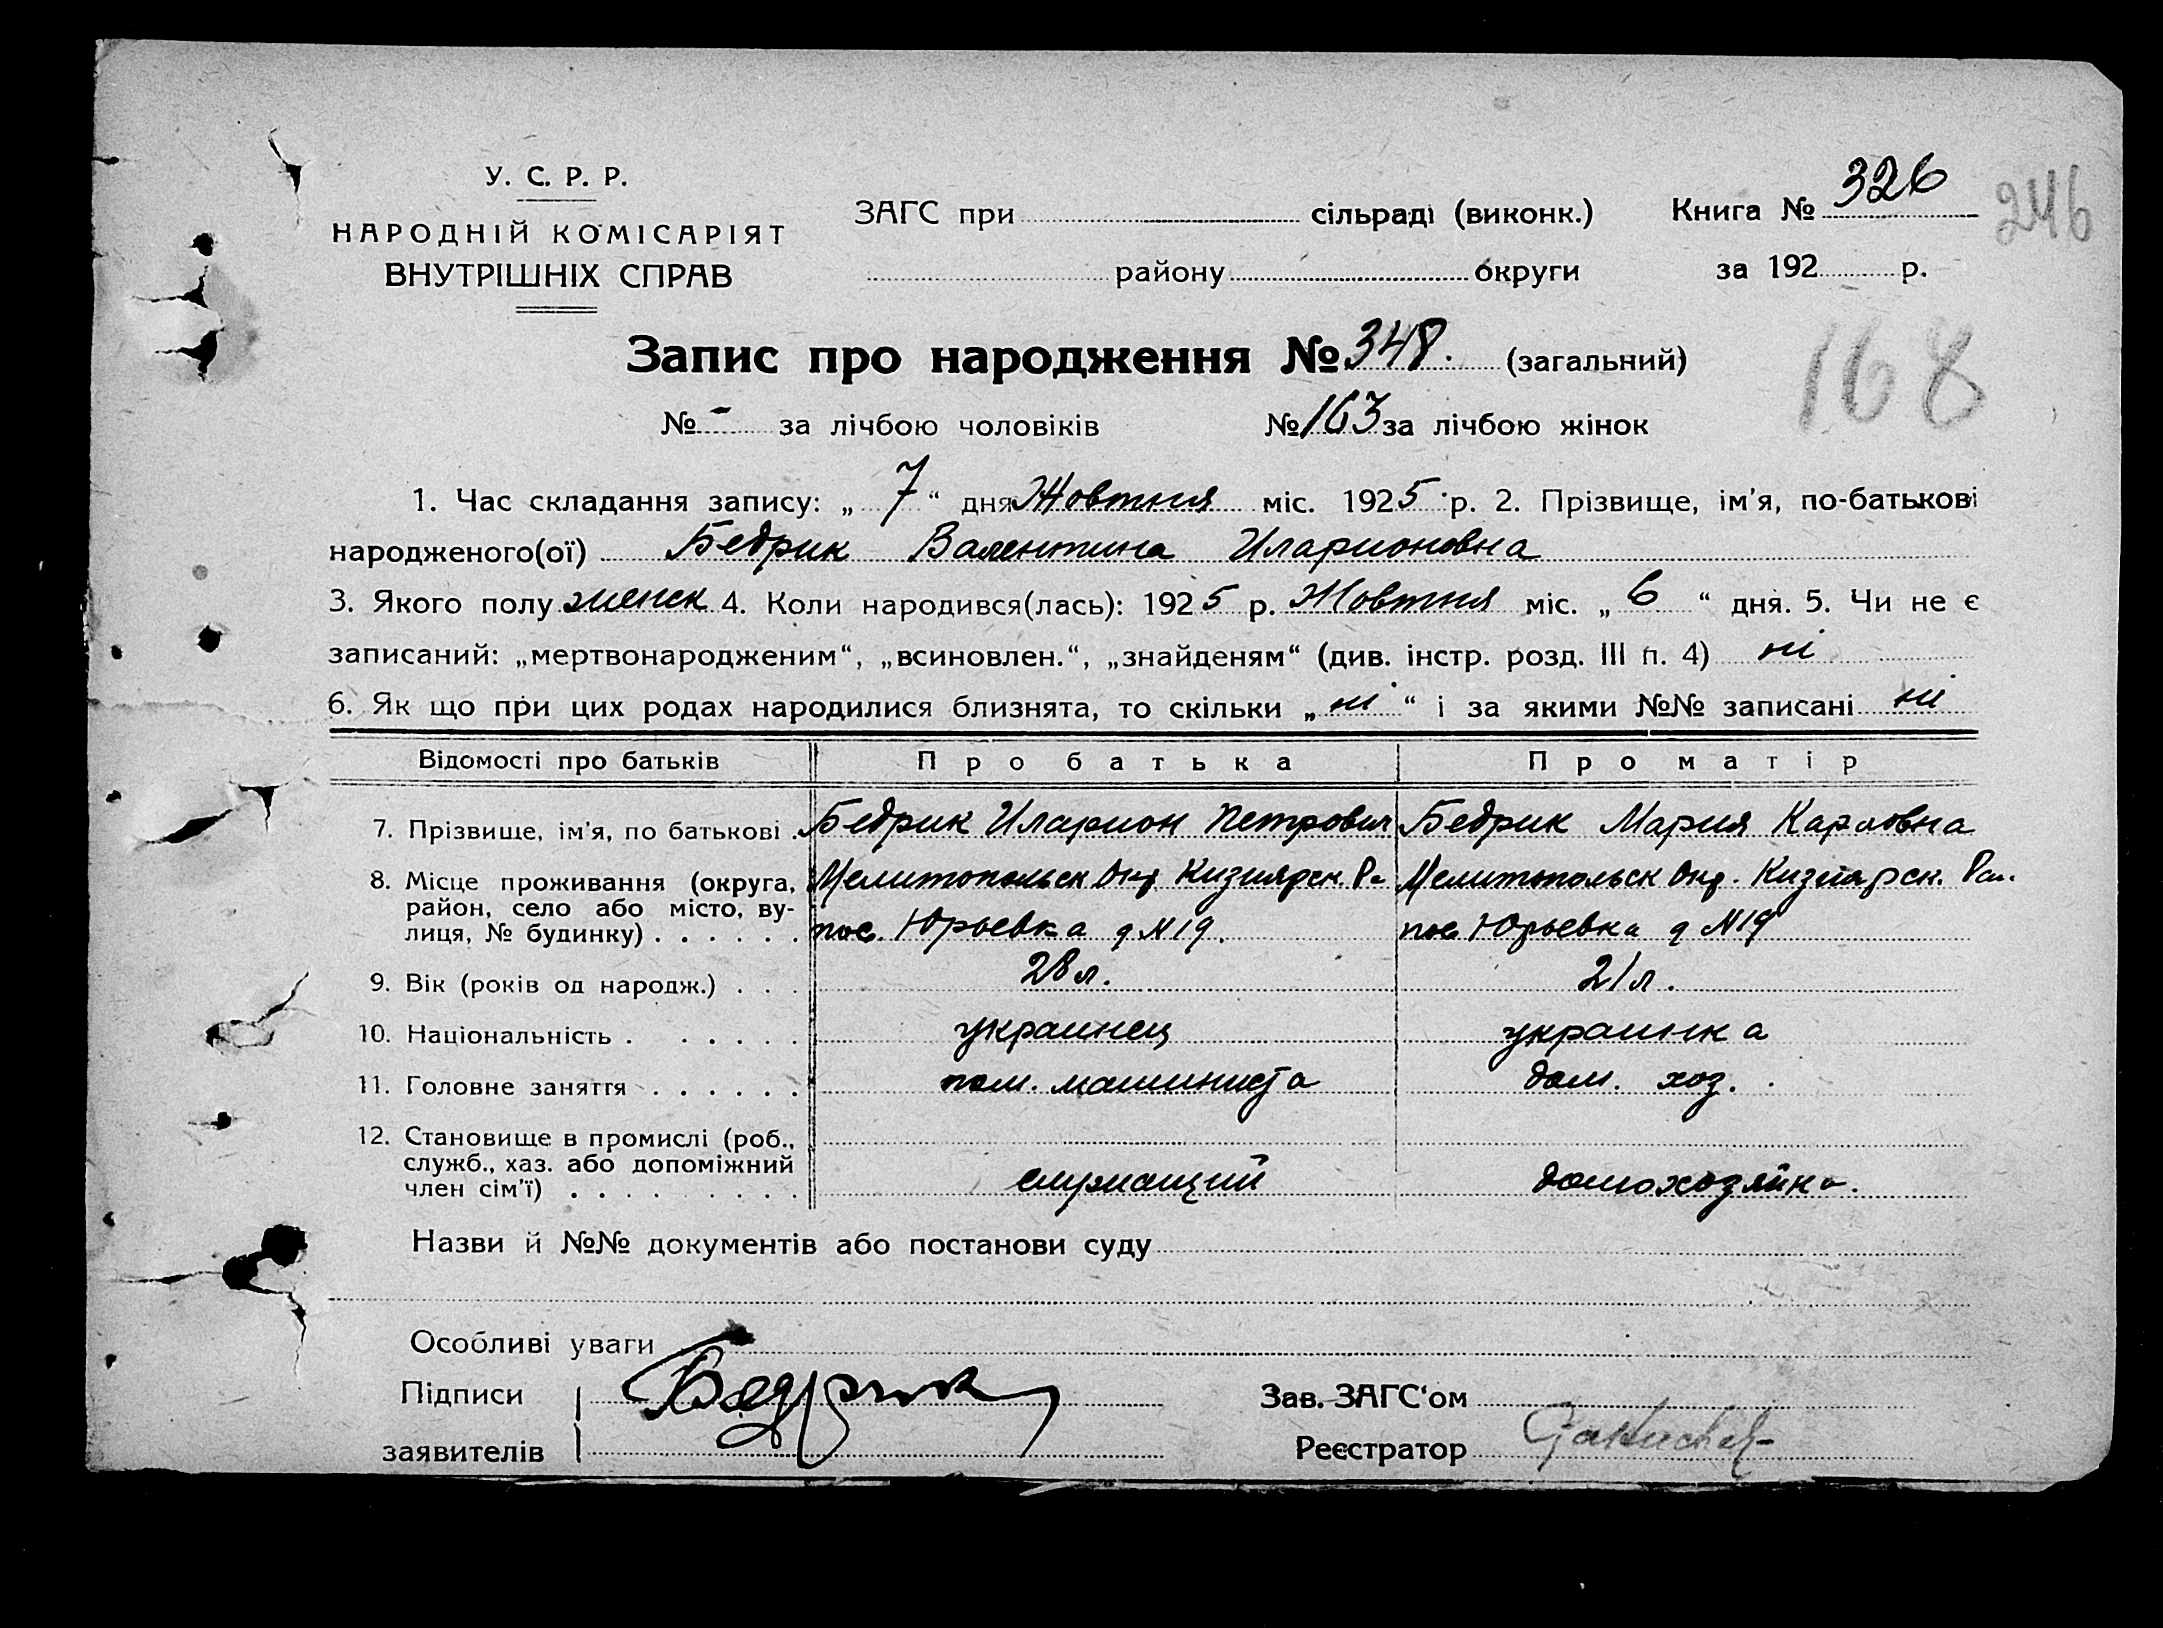 У. С. Р. Р.
НАРОДНІЙ КОМІСАРІЯТ
ВНУТРІШНІХ СПРАВ
ЗАГС при сільраді (виконк.)
району округи
Книга № 326
246
за 192 р.
Запис про народження № 348. (загальний)
168
№ - за лічбою чоловіків № 163 за лічбою жінок
1. Час складання запису: „ 7 “ дня Жовтня міс. 1925 р. 2. Прізвище, ім'я, по-батькові
народженого(ої) Бедрик Валентина Иларионовна
3. Якого полу женск 4. Коли народився(лась): 1925 р. Жовтня міс. „ 6 “ дня. 5. Чи не є
записаний: „мертвонародженим“, „всиновлен.“, „знайденям“ (див. інстр. розд. III п. 4) ні
6. Як що при цих родах народилися близнята, то скільки „ ні “ і за якими №№ записані ні
Відомості про батьків Про батька Про матір
7. Прізвище, ім'я, по батькові . Бедрик Иларион Петрович Бедрик Мария Карловна
8. Місце проживання (округа, Мелитопольск Окр Кизиярск. Р. Мелитопольск Окр. Кизиярск. Рай.
район, село або місто, ву-
лиця, № будинку) . . . . . . пос. Юрьевка д N 19. пос Юрьевка д N19
9. Вік (років од народж.) . . . 28 л. 21 л.
10. Національність . . . . . . украинец украинка
11. Головне заняття . . . . . . пом. машиниста дом. хоз.
12. Становище в промислі (роб.,
служб., хаз. або допоміжний
член сім'ї) . . . . . . . . . служащий домохозяйка.
Назви й №№ документів або постанови суду
Особливі уваги
Підписи Бедрик
заявителів
Зав. ЗАГС'ом
Реєстратор